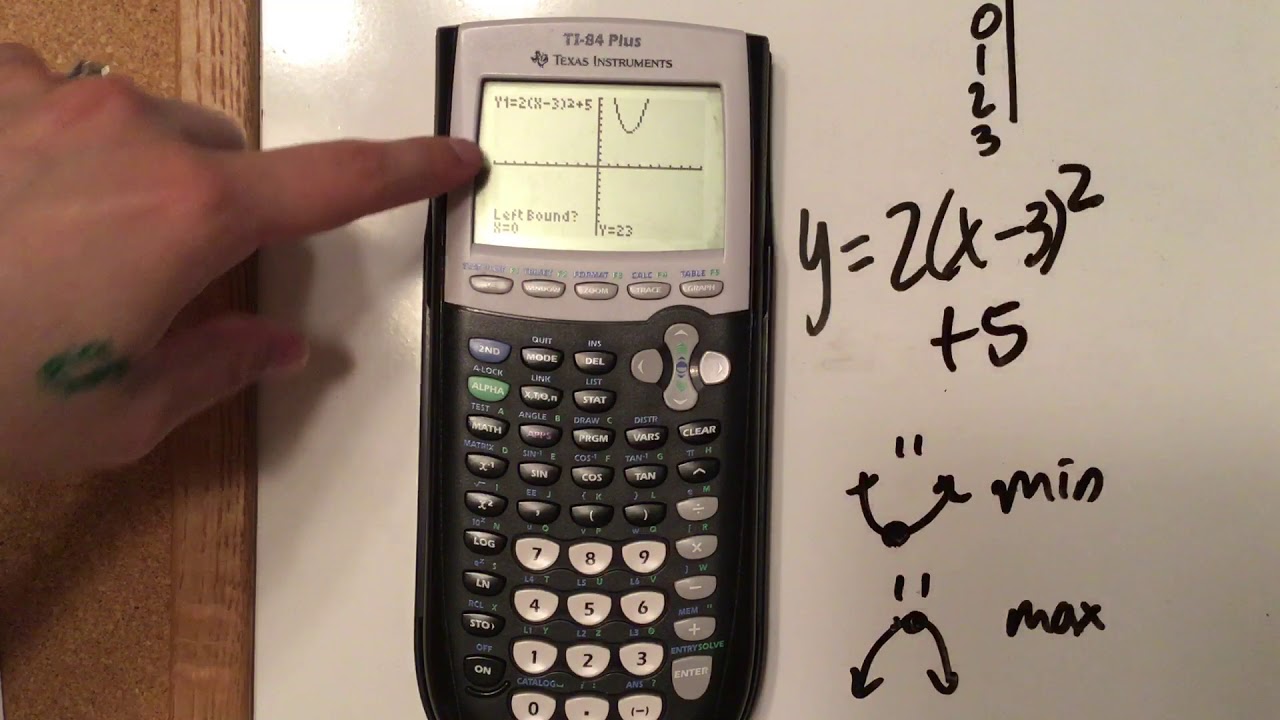 TI-84 Plus
TEXAS INSTRUMENTS
Y1=2(X-3)2+5
Left Bound?
X=0 Y=23
WINDOW ZOOM TRACE GRAPH
FORMAT F3 CALC F4 TABLE F5
QUIT INS
2ND MODE DEL
A-LOCK LINK LIST
ALPHA X,T,Θ,n STAT
TEST A ANGLE B DRAW C DISTR
MATH APPS PRGM VARS CLEAR
MATRIX D SIN⁻¹ E COS⁻¹ F TAN⁻¹ G π H
x⁻¹ SIN COS TAN ^
√ I EE J { K } L e M
x² , ( ) ÷
10ˣ N u O v P w Q [ R
LOG 7 8 9 ×
eˣ S L4 T L5 U L6 V ] W
LN 4 5 6 −
RCL X L1 Y L2 Z L3 θ MEM "
STO 1 2 3 +
OFF CATALOG i : ANS ? ENTRY SOLVE
ON 0 . (−) ENTER
0
1
2
3
y=2(x-3)²
+5
min
max